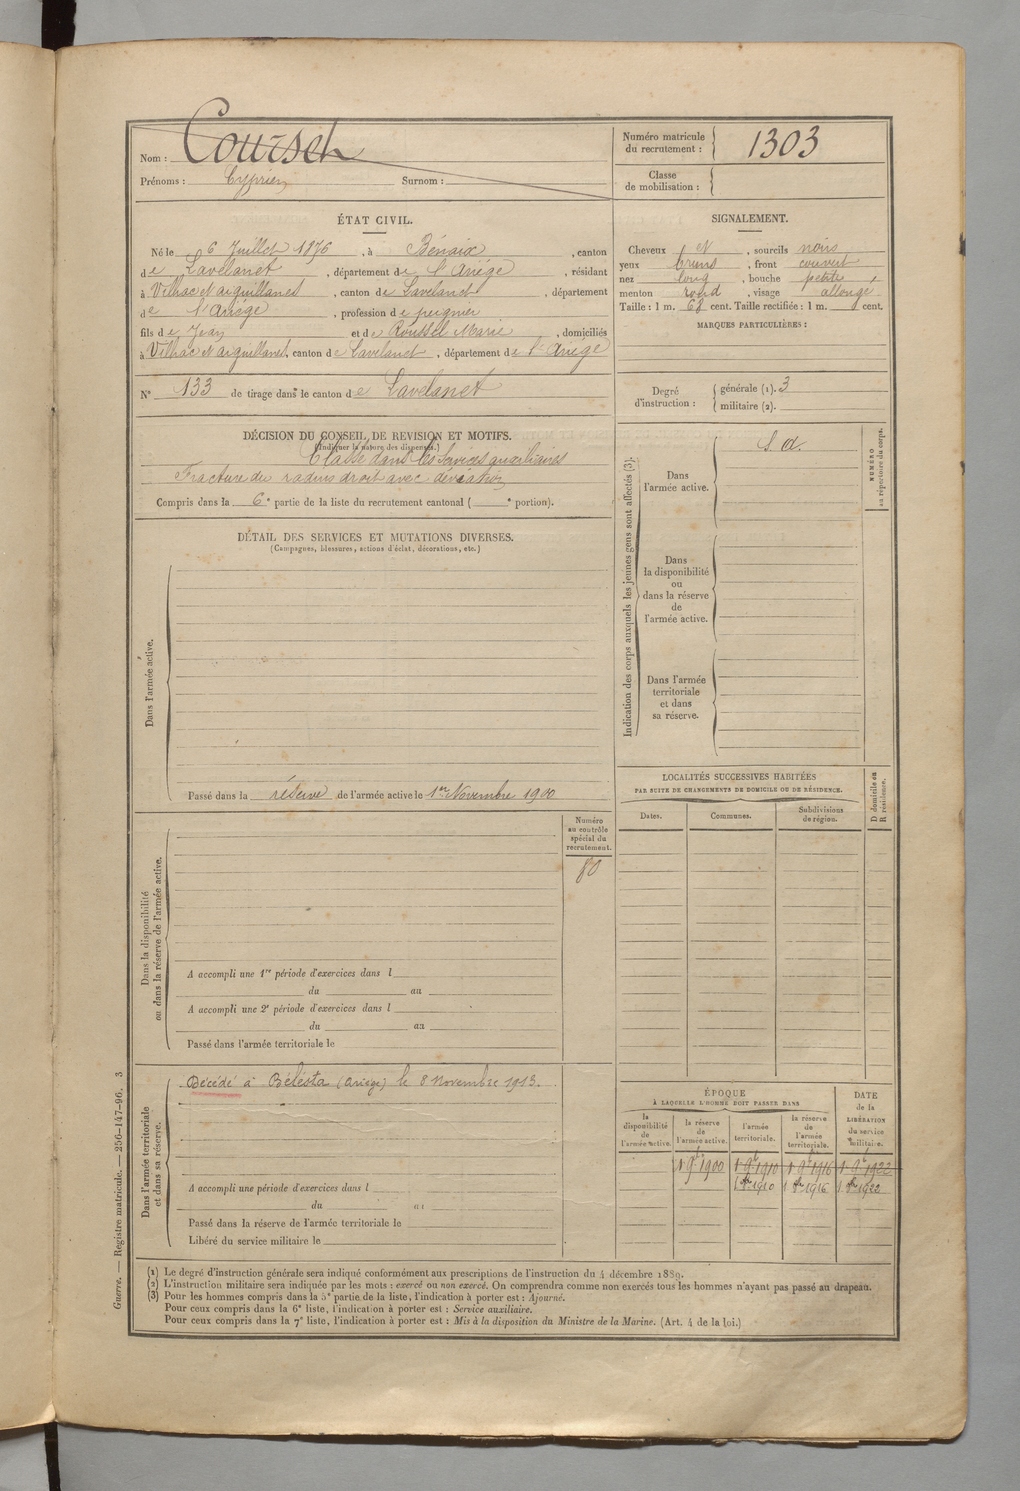 Nom : Coursel
Prénoms : Cyprien Surnom :
Numéro matricule du recrutement : 1303
Classe de mobilisation :
ÉTAT CIVIL.
Né le 6 Juillet 1876, à Bénaix, canton
de Lavelanet, département de l'Ariège, résidant
à Vilhac et aiguillanes, canton de Lavelanet, département
de l'Ariège, profession de peigneur
fils de Jean et de Roussel Marie, domiciliés
à Vilhac et aiguillanes, canton de Lavelanet, département de l'Ariège
N° 133 de tirage dans le canton de Lavelanet
SIGNALEMENT.
Cheveux et, sourcils noirs
yeux bruns, front couvert
nez long, bouche petite
menton rond, visage allongé
Taille : 1 m. 68 cent. Taille rectifiée : 1 m. cent.
MARQUES PARTICULIÈRES :
Degré d'instruction : générale (1). 3
militaire (2).
DÉCISION DU CONSEIL DE REVISION ET MOTIFS.
(Indiquer la nature des dispenses.)
Classé dans les services auxiliaires
Fracture du radius droit avec déviation
Compris dans la 6e partie de la liste du recrutement cantonal ( e portion).
DÉTAIL DES SERVICES ET MUTATIONS DIVERSES.
(Campagnes, blessures, actions d'éclat, décorations, etc.)
Dans l'armée active.
Passé dans la réserve de l'armée active le 1er Novembre 1900
Indication des corps auxquels les jeunes gens sont affectés (3).
NUMÉRO au répertoire du corps.
Dans l'armée active.
S. a.
Dans la disponibilité ou dans la réserve de l'armée active.
Dans l'armée territoriale et dans sa réserve.
LOCALITÉS SUCCESSIVES HABITÉES
PAR SUITE DE CHANGEMENTS DE DOMICILE OU DE RÉSIDENCE.
Dates. Communes. Subdivisions de région.
D domicile ou R résidence.
Numéro au contrôle spécial du recrutement.
80
Dans la disponibilité ou dans la réserve de l'armée active.
A accompli une 1re période d'exercices dans l
du au
A accompli une 2e période d'exercices dans l
du au
Passé dans l'armée territoriale le
Dans l'armée territoriale et dans sa réserve.
Décédé à Bélesta (Ariège) le 8 Novembre 1913.
A accompli une période d'exercices dans l
du au
Passé dans la réserve de l'armée territoriale le
Libéré du service militaire le
ÉPOQUE
À LAQUELLE L'HOMME DOIT PASSER DANS
la disponibilité de l'armée active.
la réserve de l'armée active.
l'armée territoriale.
la réserve de l'armée territoriale.
DATE de la LIBÉRATION du service militaire.
1 9b 1900 1 9b 1910 1 9b 1916 1 9b 1922
1 1910 1 1916 1 1922
(1) Le degré d'instruction générale sera indiqué conformément aux prescriptions de l'instruction du 4 décembre 1889.
(2) L'instruction militaire sera indiquée par les mots : exercé ou non exercé. On comprendra comme non exercés tous les hommes n'ayant pas passé au drapeau.
(3) Pour les hommes compris dans la 5e partie de la liste, l'indication à porter est : Ajourné.
Pour ceux compris dans la 6e liste, l'indication à porter est : Service auxiliaire.
Pour ceux compris dans la 7e liste, l'indication à porter est : Mis à la disposition du Ministre de la Marine. (Art. 4 de la loi.)
Guerre. — Registre matricule. — 256-147-96. 3